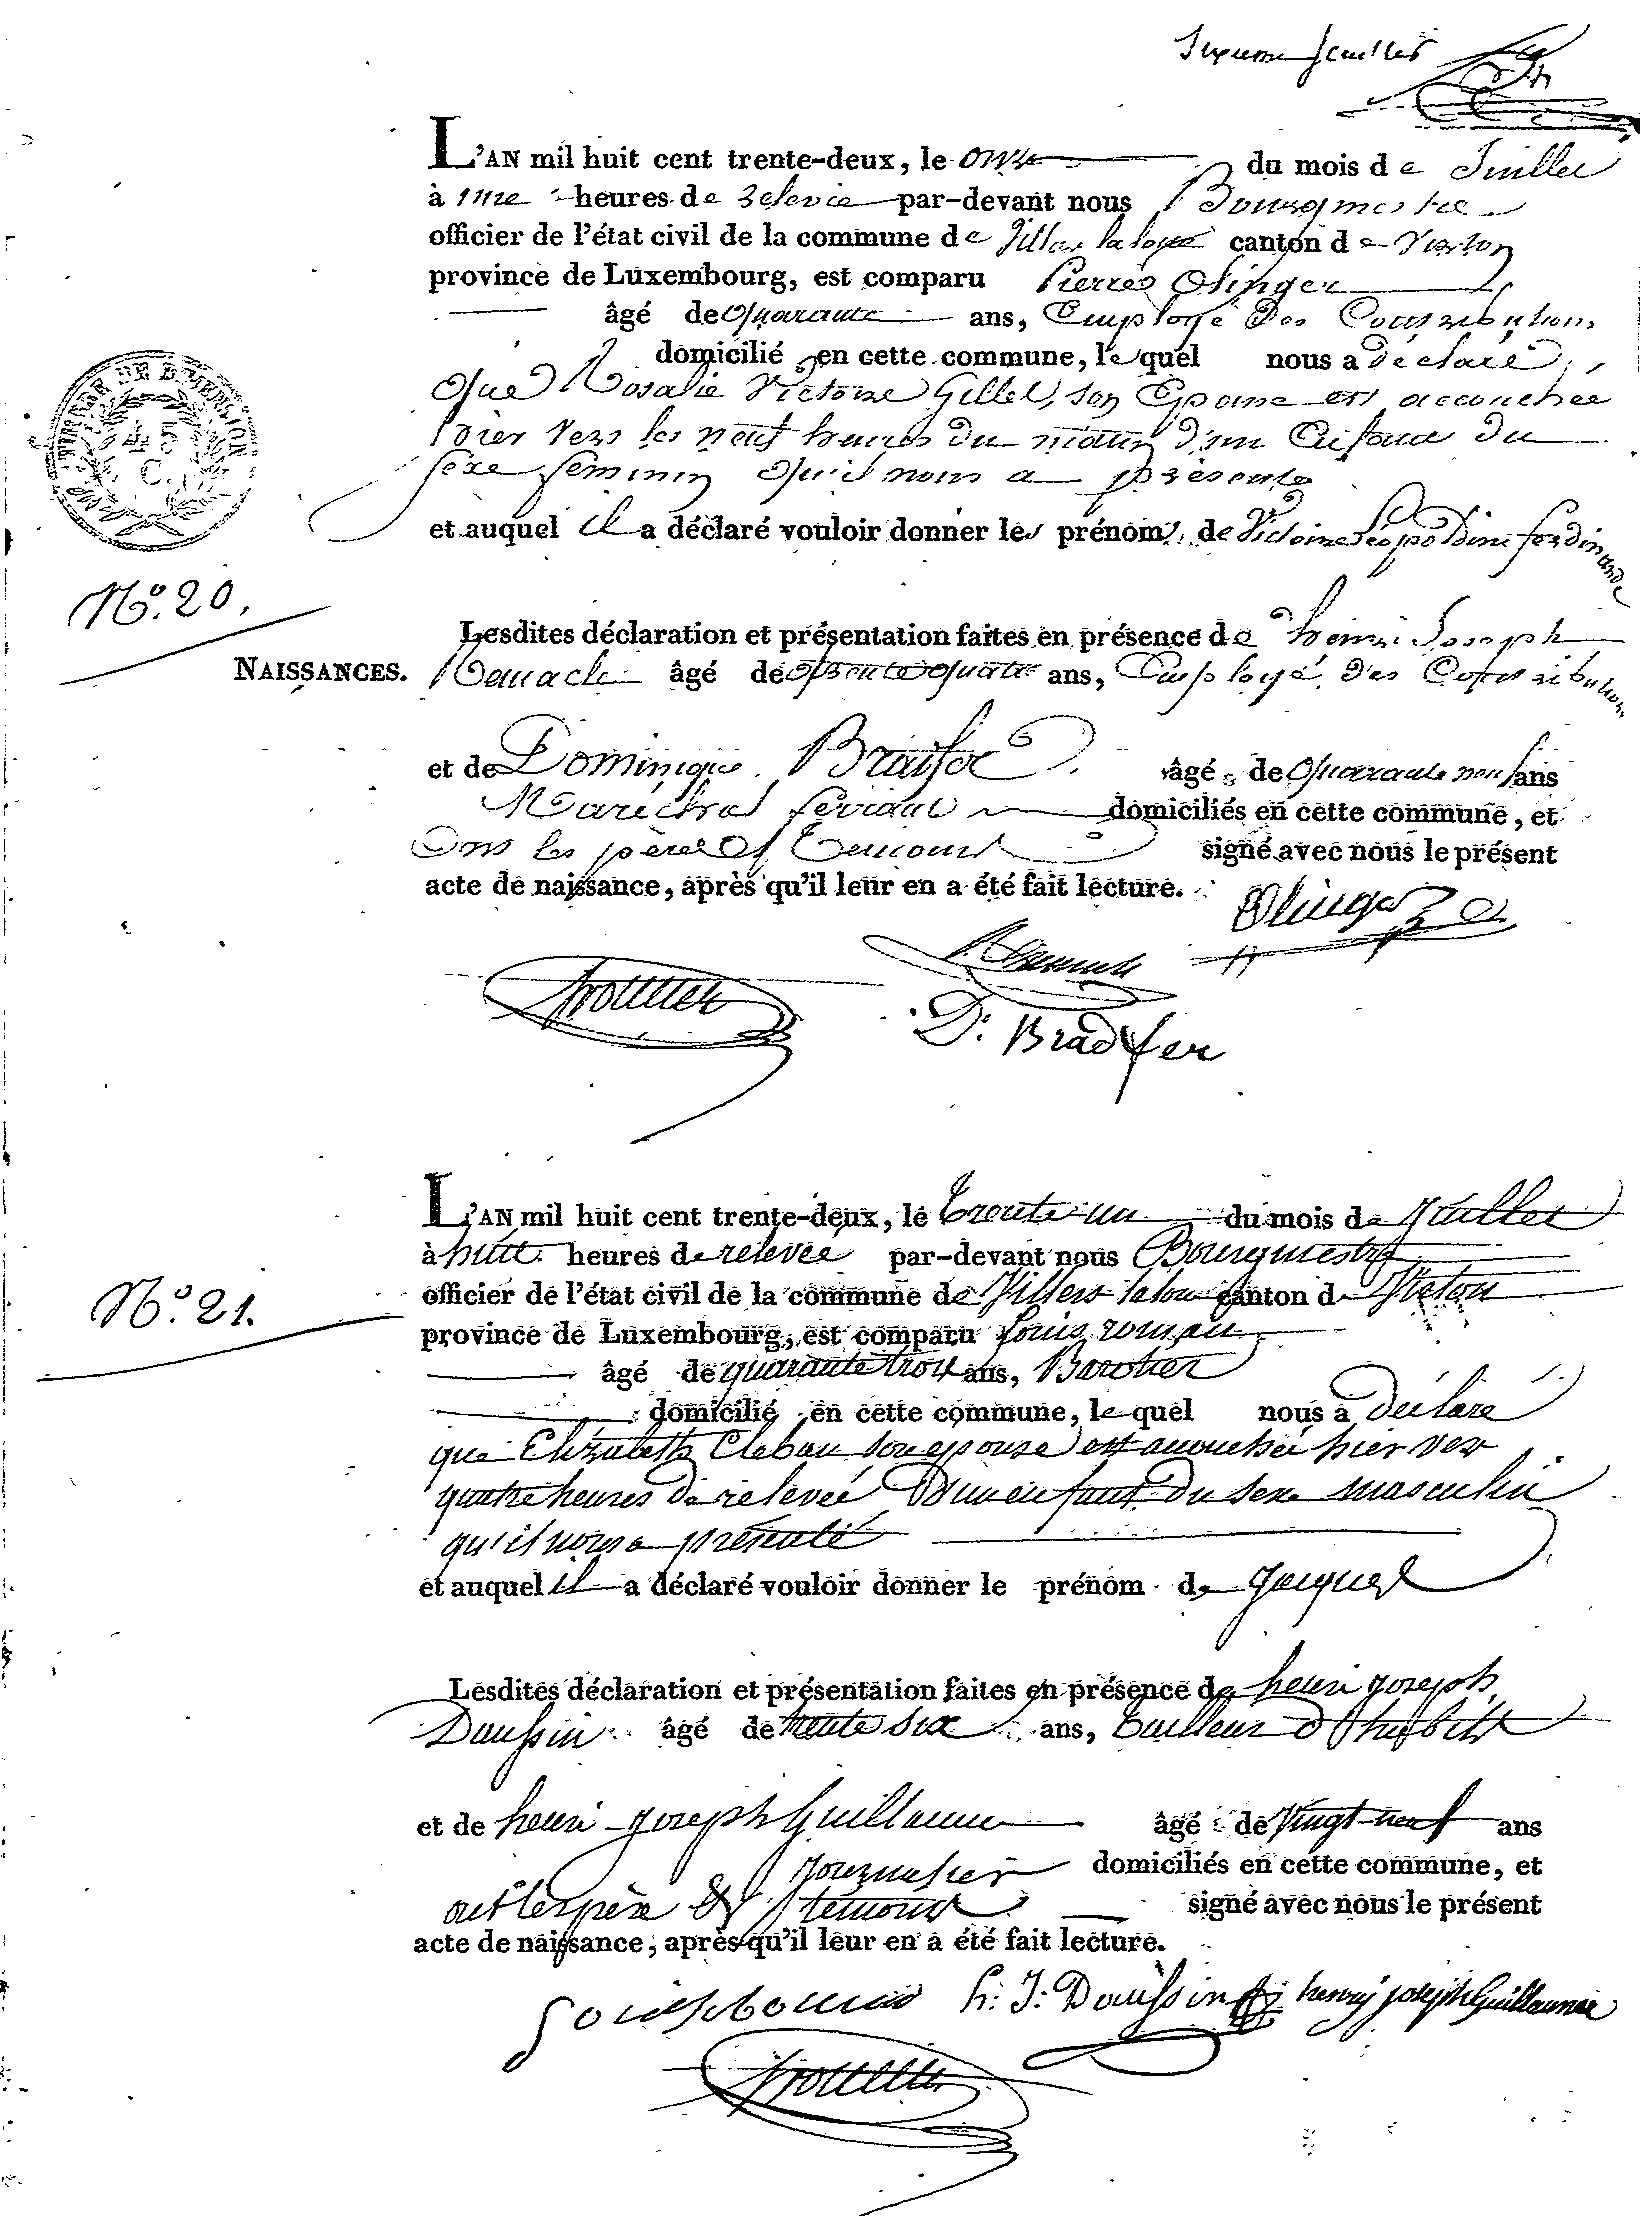 Sixieme feuillet
L'AN mil huit cent trente-deux, le onze du mois de Juillet
à une heures de relevée par-devant nous Bourgmestre
officier de l'état civil de la commune de Villers la loue canton de Virton
province de Luxembourg, est comparu Pierre Olinger
âgé de quarante ans, Employé des Contributions
domicilié en cette commune, le quel nous a déclaré
que Rosalie Victoire Gillet, son Epouse est accouchée
hier vers les neuf heures du matin d'un Enfant du
sexe feminin qu'il nous a présenté
et auquel il a déclaré vouloir donner les prénoms de Victoire Léopoldine ferdinande
TIMBRE DE DIMENSION
45
C.
No. 20.
NAISSANCES.
Lesdites déclaration et présentation faites en présence de henri Joseph
Renacle âgé de trente quatre ans, Employé des Contributions
et de Dominique Bradfer âgé de quarante neuf ans
Maréchal ferrant domiciliés en cette commune, et
ont les père et temoins signé avec nous le présent
acte de naissance, après qu'il leur en a été fait lecture.
Olinger
D. Bradfer
No. 21.
L'AN mil huit cent trente-deux, le trente un du mois de Juillet
à huit heures de relevée par-devant nous Bourgmestre
officier de l'état civil de la commune de Villers la loue canton de Virton
province de Luxembourg, est comparu Louis roman
âgé de quarante trois ans,
domicilié en cette commune, le quel nous a déclaré
que Elizabeth son epouse est accouchée hier vers
quatre heures de relevée d'un enfant du sexe masculin
qu'il nous a présenté
et auquel il a déclaré vouloir donner le prénom de Jacques
Lesdites déclaration et présentation faites en présence de henri joseph
Daussin âgé de trente six ans, tailleur d'habits
et de henri joseph Guillaume âgé de vingt-neuf ans
journalier domiciliés en cette commune, et
ont les père et temoins signé avec nous le présent
acte de naissance, après qu'il leur en a été fait lecture.
h: J: Daussin henry joseph Guillaume